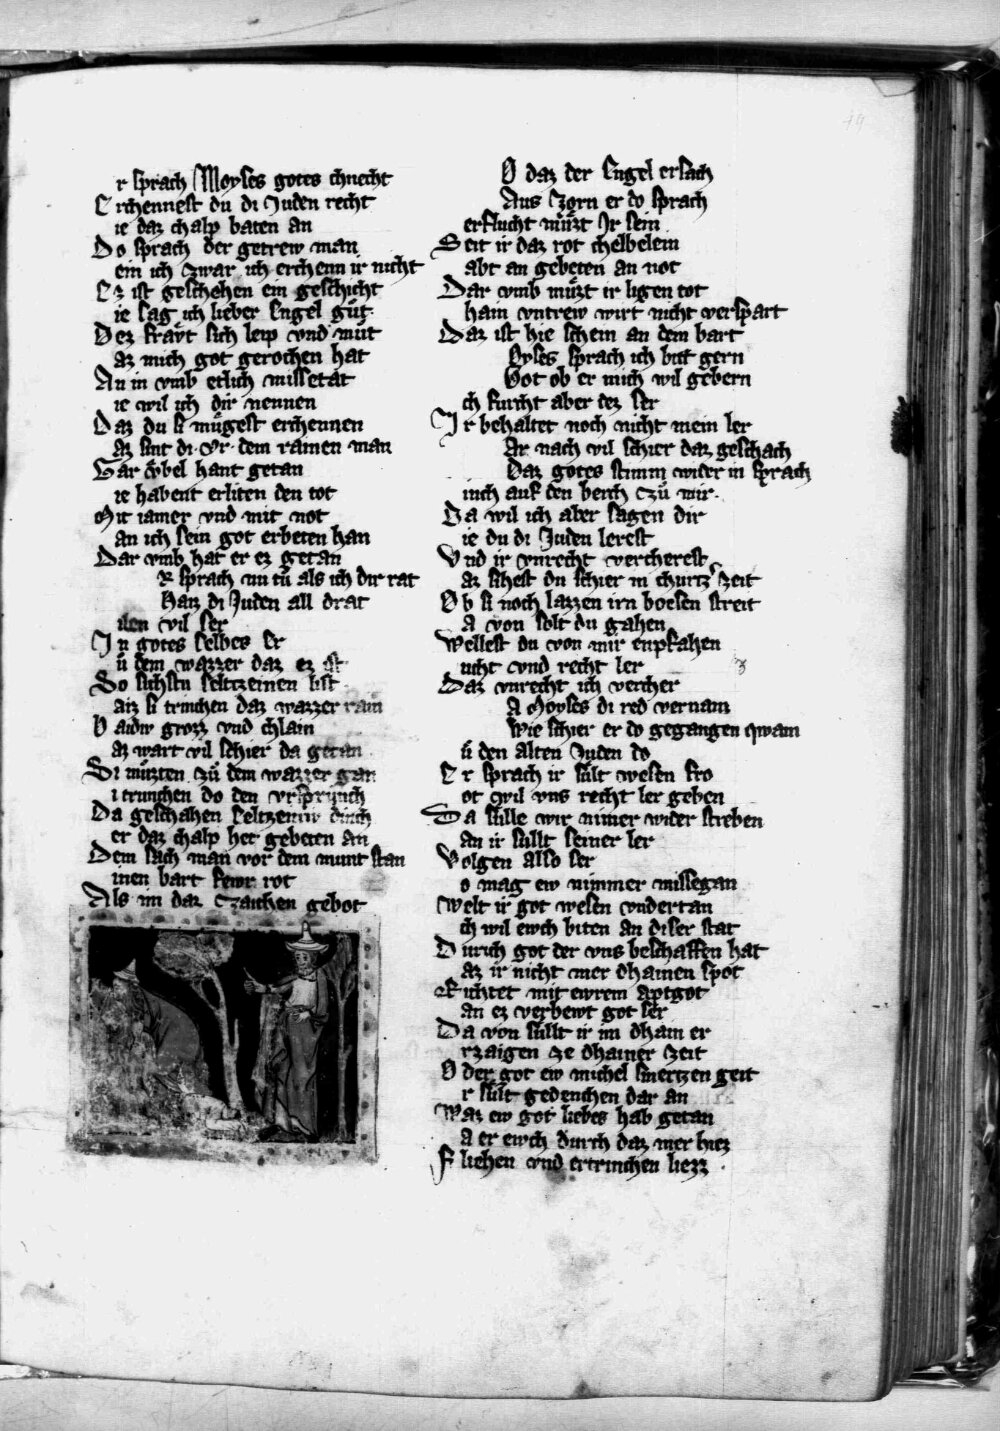 r sprach Moyses gotes chnecht
Erchennest du di Juden recht
ie daz chalp baten an
Do sprach der getrew man
ein ich zwar ich erchenn ir nicht
Ez ist geschehen ein geschicht
ie sag ich lieber Engel gůt
Dez fraẘt sich leip vnd můt
az mich got gerochen hat
An in vmb etlich missetat
ie wil ich dir nennen
Daz du si můgest erchennen
az sint di vr dem rainen man
Gar v̊bel hant getan
ie habent erliten den tot
Mit iamer vnd mit not
an ich sein got erbeten han
Dar vmb hat er ez getan
R sprach nu tů als ich dir rat
Haiz di Juden all drat
ilen vil ser
In gotes selbes Er
ů dem wazzer daz ez ist
So sichstu seltzeinen list
aiz si trinchen daz wazzer rain
O aidiw grozz vnd chlain
az wart vil schier da getan
Si můzten zů dem wazzer gan
i trunchen do den vrsprinch
Da geschahen seltzeniw dinch
er daz chalp het gebeten an
Dem sach man vor dem munt stan
inen bart fewr rot
Als im daz czaichen gebot
O daz der Engel ersach
Aus Zorn er do sprach
erflucht můzt Ir sein
Seit ir daz rot chelbelein
abt an gebeten an not
Dar vmb můzt ir ligen tot
hain vntrew wirt nicht verspart
Daz ist hie schein an dem bart
Oyses sprach ich bitt gern
Got ob er mich wil gebern
ch furcht aber dez ser
Ir behaltet noch nicht mein ler
Ar nach vil schier daz geschach
Daz gotes stimm wider in sprach
inch auf den berch Czů mir
Da wil ich aber sagen dir
ie du di Juden lerest
Vnd ir vnrecht vercherest
az sihest du schier in churtz zeit
Ob si noch lazzen irn boesen streit
A von solt du gahen
Wellest du von mir enpfahen
ucht vnd recht ler
Daz vnrecht ich vercher
A Moyses di red vernam
Wie schier er do gegangen qwam
ů den alten Juden do
Er sprach ir sůlt wesen fro
ot wil vns recht ler geben
Da sulle wir nimer wider streben
an ir sullt seiner ler
Volgen also ser
o mag ew nimmer missegan
Welt ir got wesen vndertan
ch wil ewch biten an diser stat
Durich got der vns beschaffen hat
az ir nicht mer dhainen spot
Richtet mit ewrem aptgot
an ez verbewt got ser
Da von sullt ir im dhain er
rzaigen ze dhainer zeit
O der got ew michel smertzen geit
r sůlt gedenchen dar an
Waz ew got liebes hab getan
a er ewch durch daz mer hiez
Fliehen vnd ertrinchen liezz